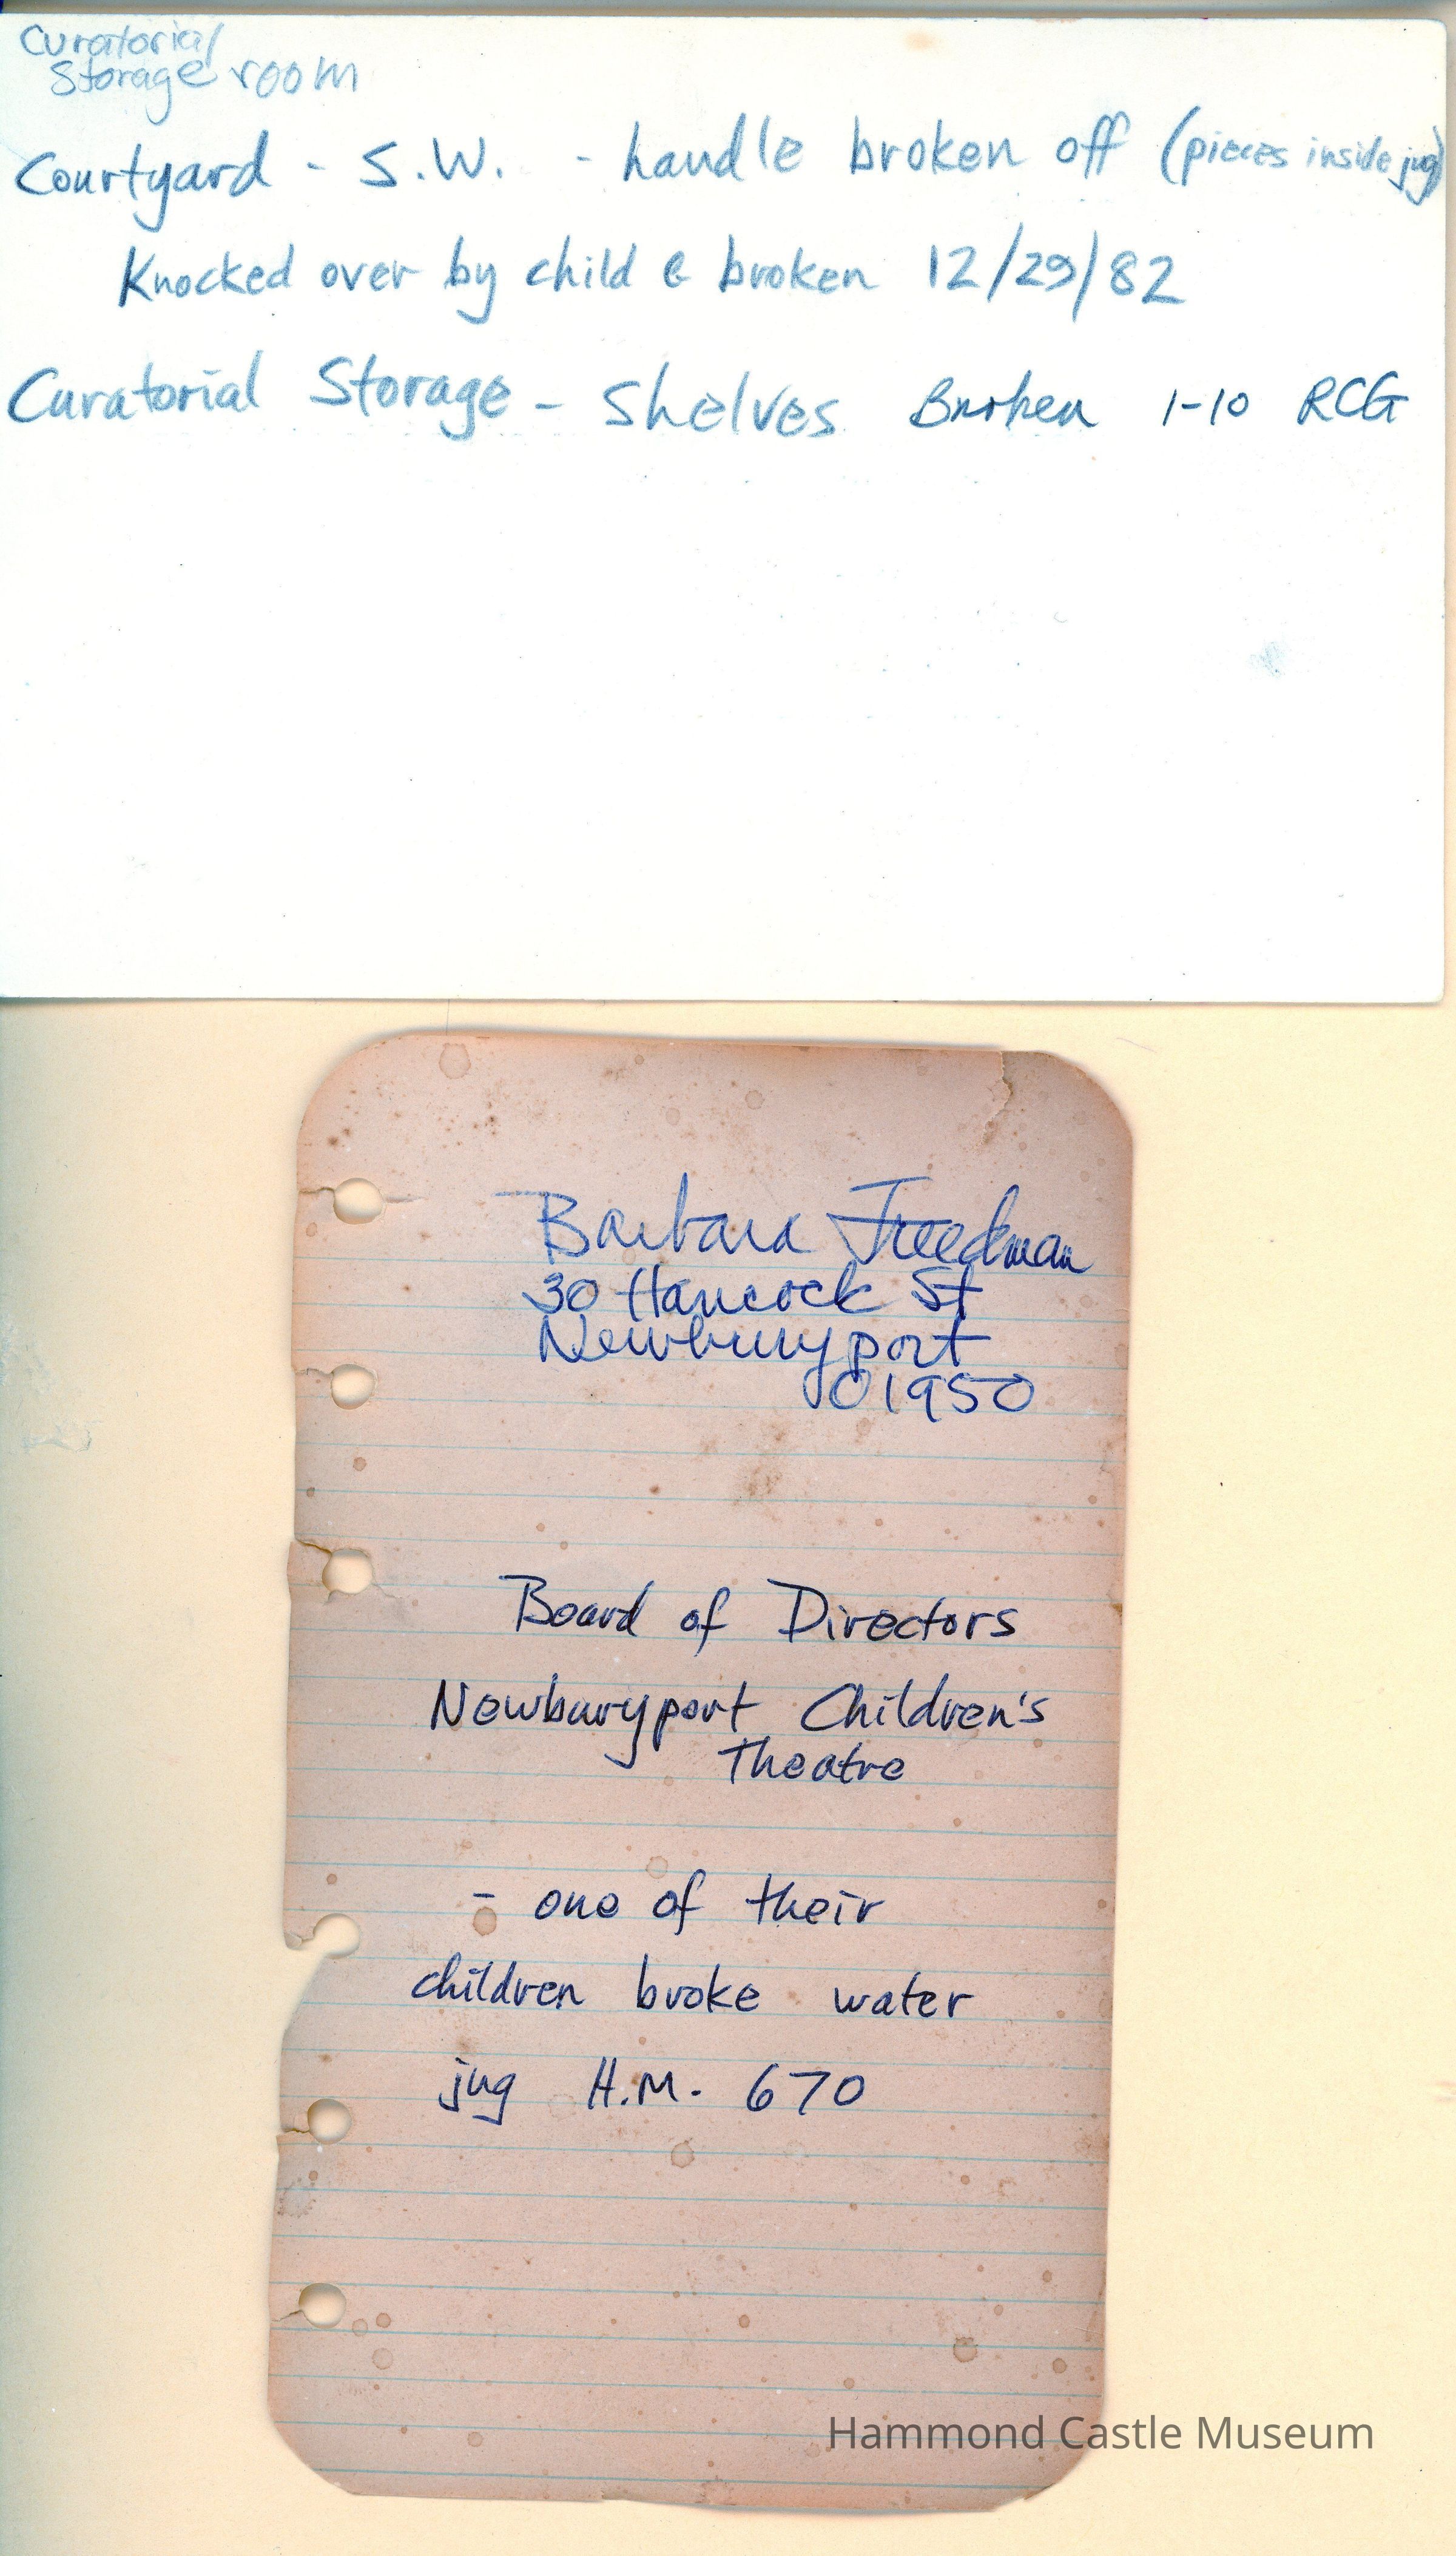 Curatorial
Storage room
Courtyard - S.W. - handle broken off (pieces inside jug)
Knocked over by child & broken 12/29/82
Curatorial Storage - Shelves Broken 1-10 RCG
Barbara Freedman
30 Hancock St
Newburyport
01950
Board of Directors
Newburyport Children's
Theatre
- one of their
children broke water
jug H.M. 670
Hammond Castle Museum